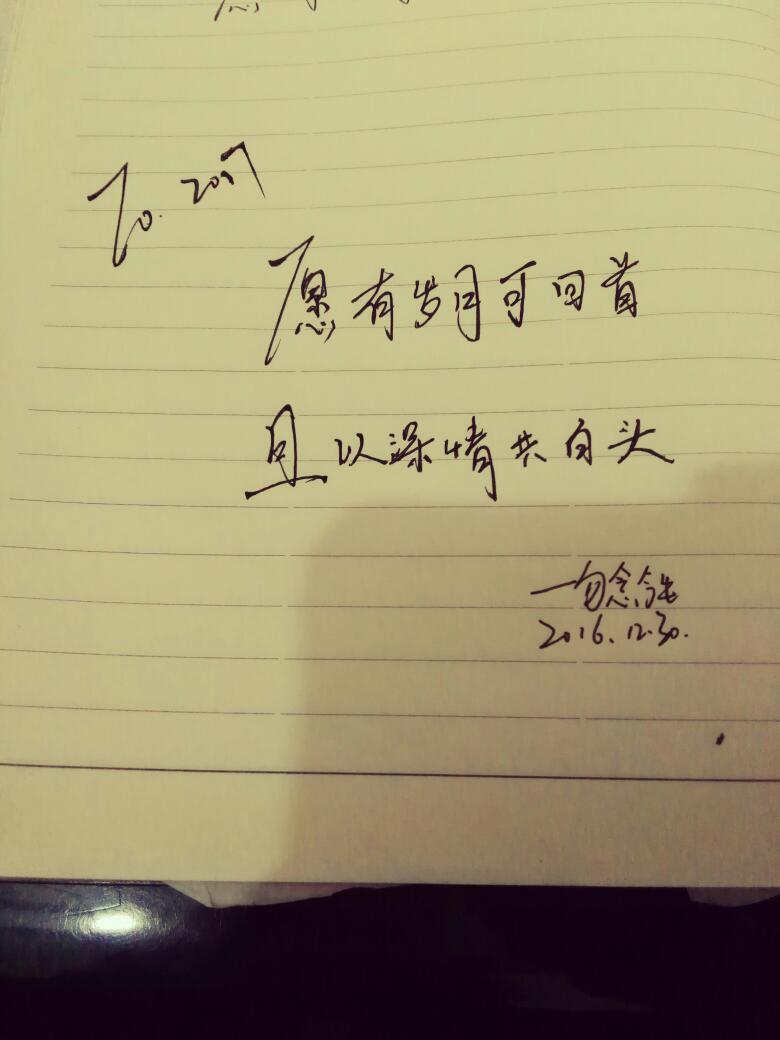 To. 2017
愿有岁月可回首
且以深情共白头
2016.12.30.